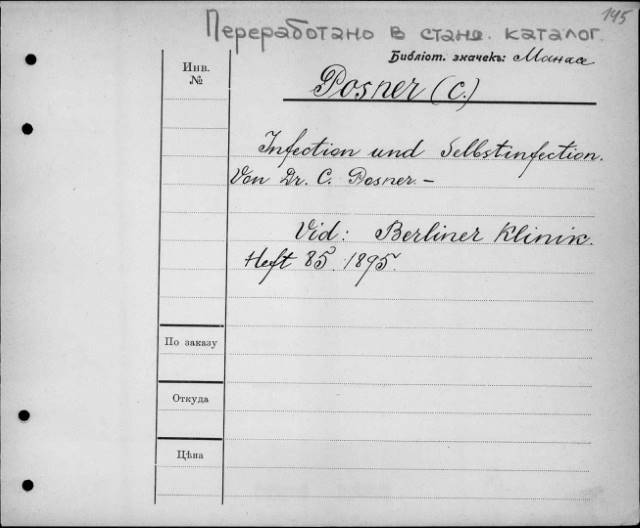 195
Переработано в станд. каталог.
Библіот. значекъ:
Инв.
№
Posner (C.)
Infection und Selbstinfection.
Von Dr. C. Posner. —
Vid: Berliner Klinik.
Heft 85. 1895.
По заказу
Откуда
Цѣна